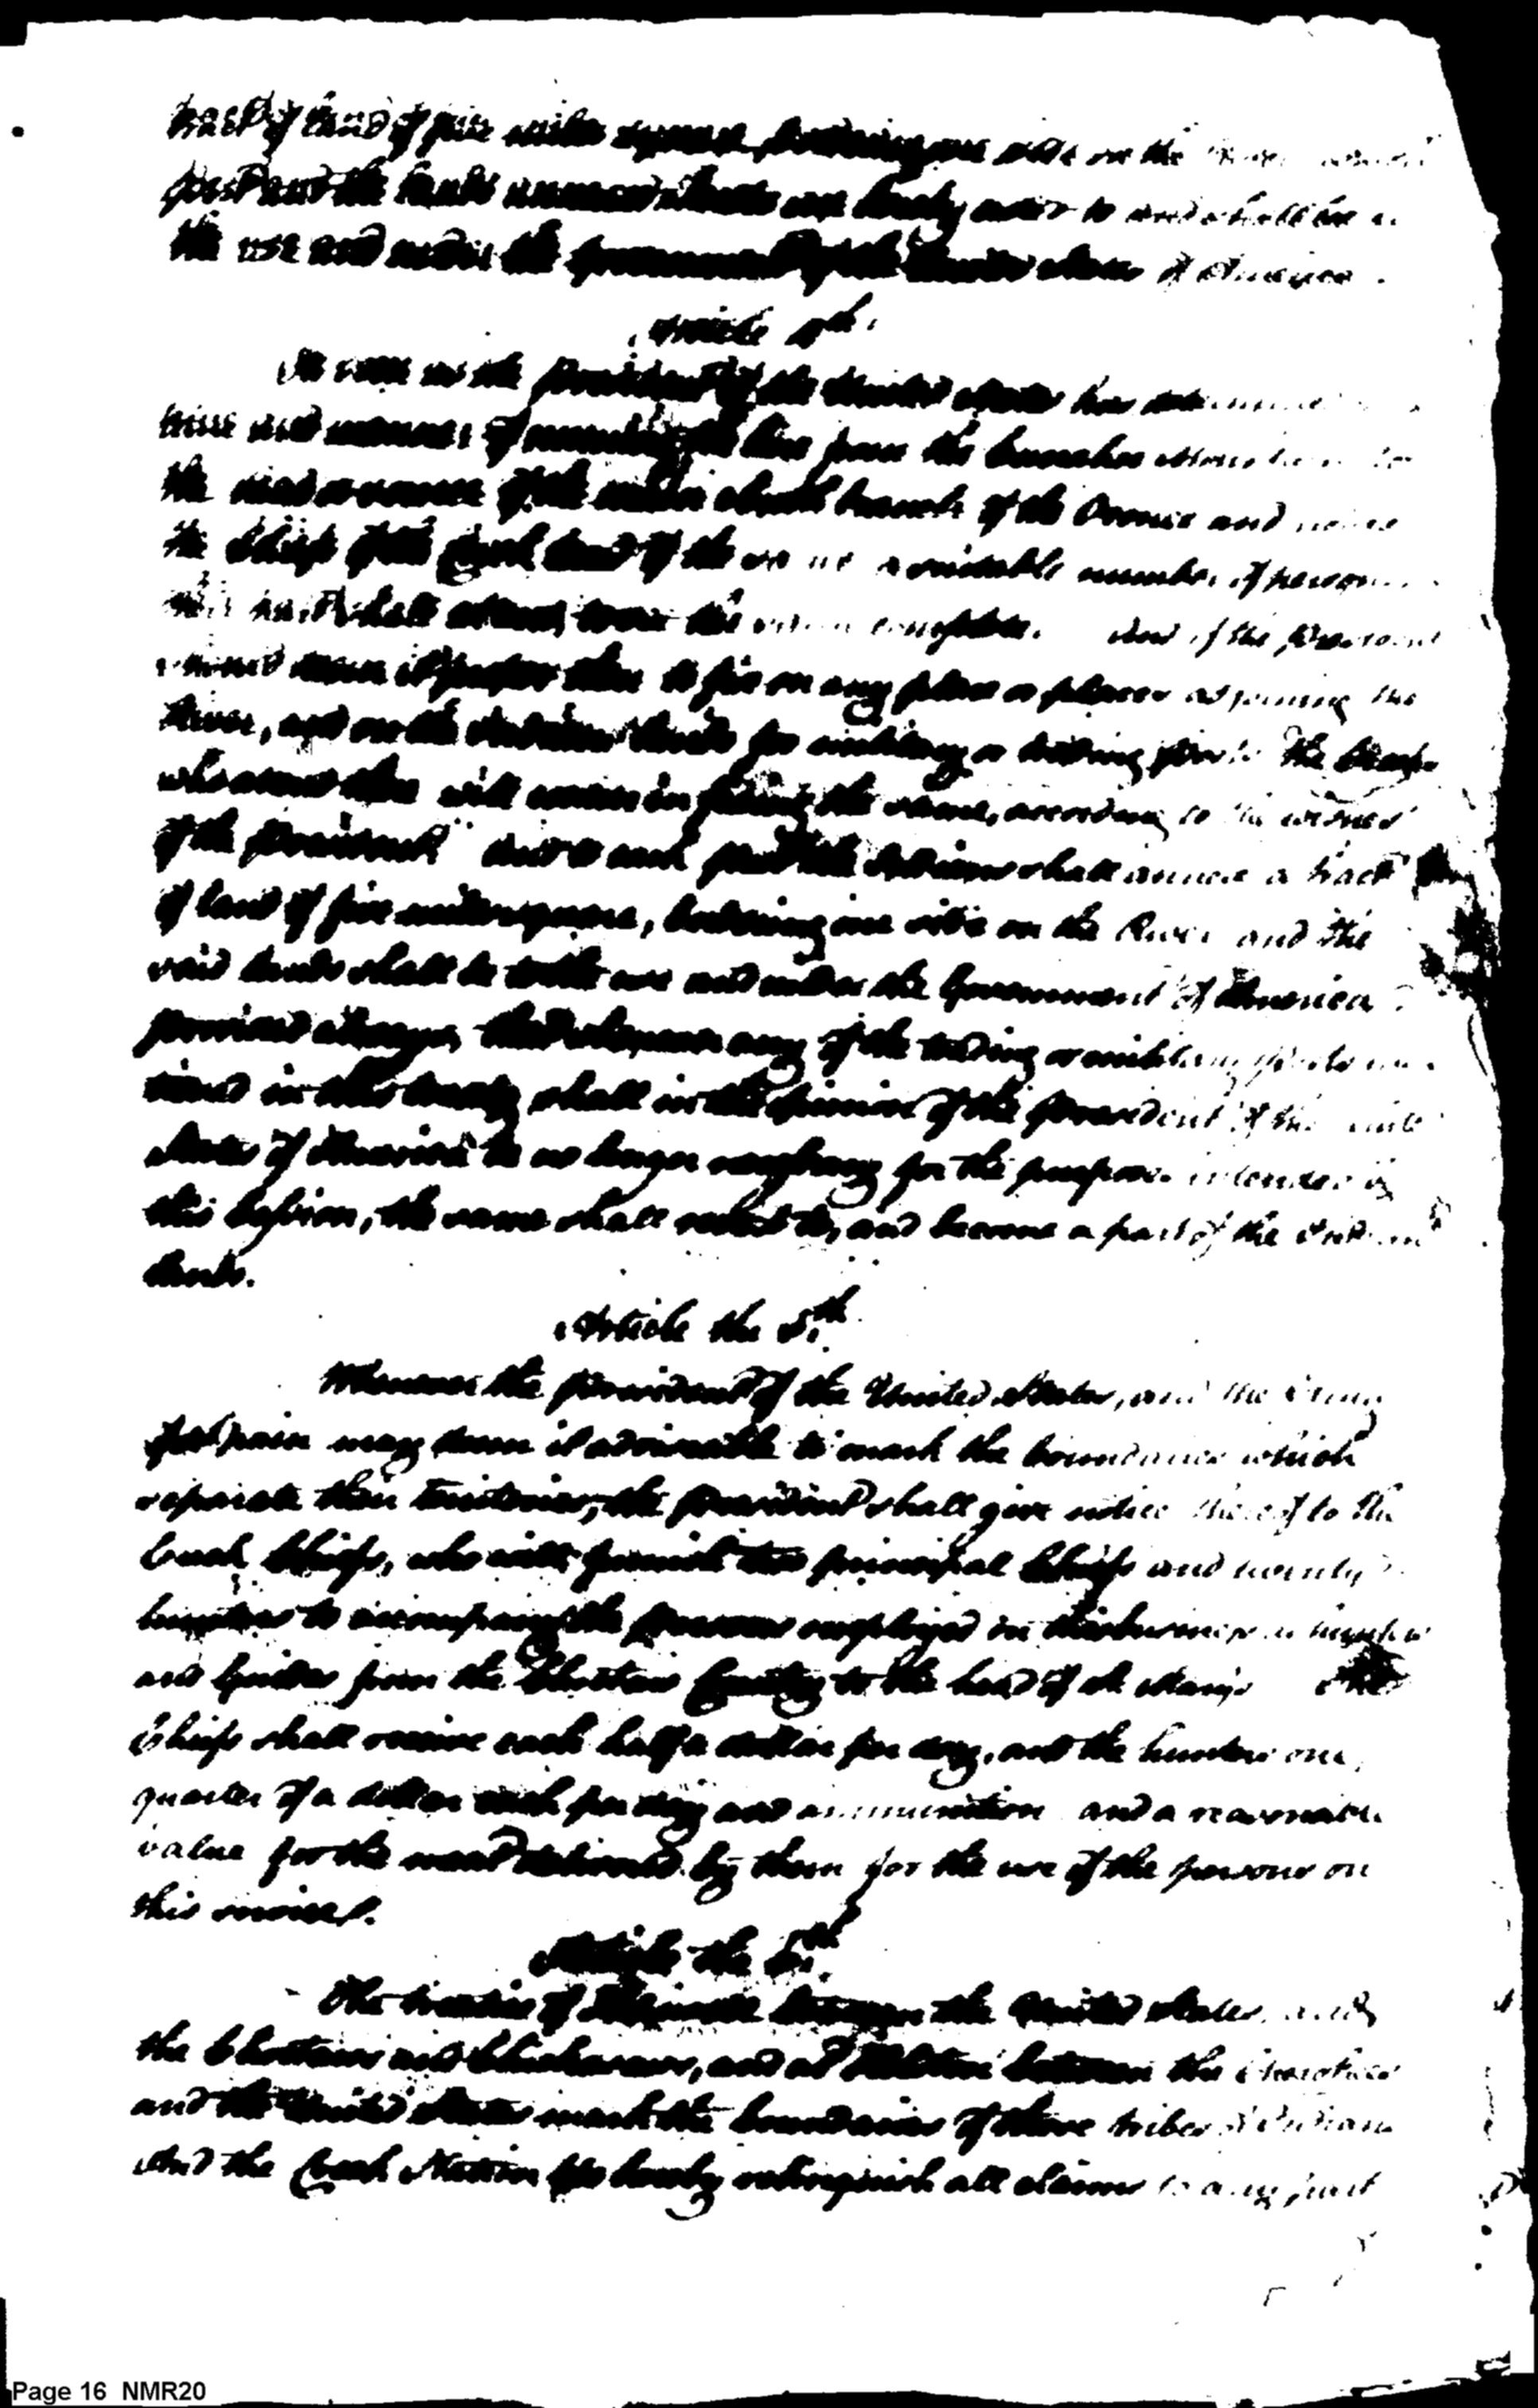 tract of land of five miles square, bordering one side on the
post and the lands annexed thereto are hereby ceded to and shall be
the use and under the government of the United States of America.
Article 4th.
So soon as the President of the United States has determined
time and manner of running the line from the Currahee Mountain to
the head or source of the main South branch of the Oconee and
the Chiefs of the Creek land of the same a suitable number of persons
shall attend to see the same completed. And if the President
should deem it proper then to fix on any place or places adjoining the
River, and on the Indian lands for military or trading posts the Creeks
who attend there will concur in fixing the same, according to the wishes
of the President. And to each post the Indians shall annex a tract
of land of five miles square, bordering one side on the River and the
said lands shall be to the use and under the Government of America
Provided always, that whenever any of the trading or military posts
tioned in this treaty, shall in the opinion of the President of the
States of America be no longer necessary for the purpose intended by
this cession, the same shall revert to, and become a part of the Indian
lands.
Article the 5th.
Whenever the President of the United States, and the King
of Spain may deem it advisable to mark the boundaries which
separate their territories, the President shall give notice thereof to the
Creek Chiefs, who will furnish two principal Chiefs and twenty
hunters to accompany the persons employed in this business as hunters
and Guides from the Choctaw Country to the head of St. Marys
Chiefs shall receive each half a dollar per day, and the hunters one
quarter of a dollar each per day and ammunition and a reasonable
value for the meat delivered by them for the use of the persons on
this service.
Article the 6th.
The treaties of Hopewell between the United States and
the Choctaws and Chickasaws, and at Holston between the Cherokees
and the United States mark the boundaries of those tribes of Indians
And the Creek Nation do hereby relinquish all claims to any part
Page 16 NMR20